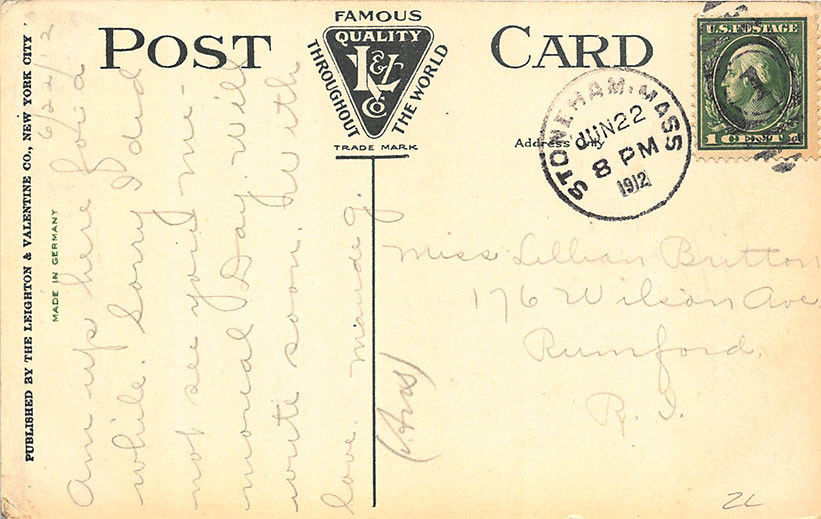 POST CARD
FAMOUS
QUALITY
THROUGHOUT THE WORLD
L&V
Co
TRADE MARK
U.S. POSTAGE
1 CENT 1
STONEHAM, MASS
JUN 22
8 PM
1912
Address only
PUBLISHED BY THE LEIGHTON & VALENTINE CO., NEW YORK CITY
MADE IN GERMANY
6/22/12
Am up here for a
while. Sorry I did
not see you Me-
morial Day. Will
write soon. With
love. Maude J.
Miss Lillian Britton
176 Wilson Ave
Rumford,
R. I.